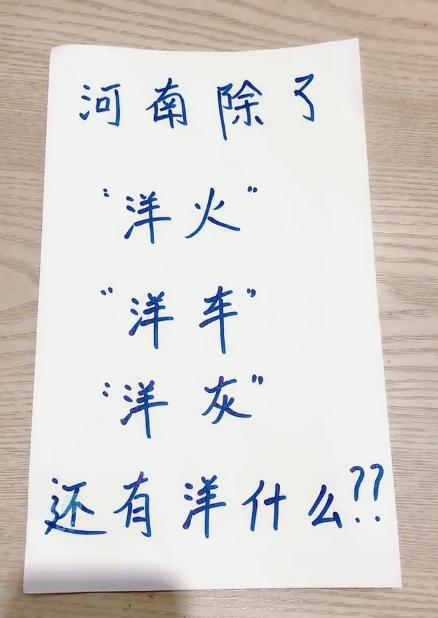 河南除了
“洋火”
“洋车”
“洋灰”
还有洋什么??